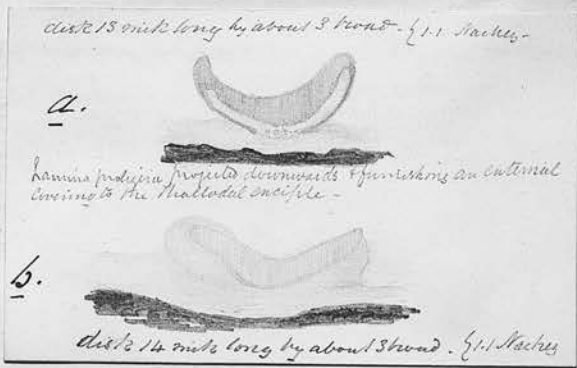 disk 13 mik long by about 3 broad. 1.1 Nachez
a.
Lamina proligera projected downwards & furnishing an external
covering to the thallodal exciple
b.
disk 14 mik long by about 3 broad. 1.1 Nachez